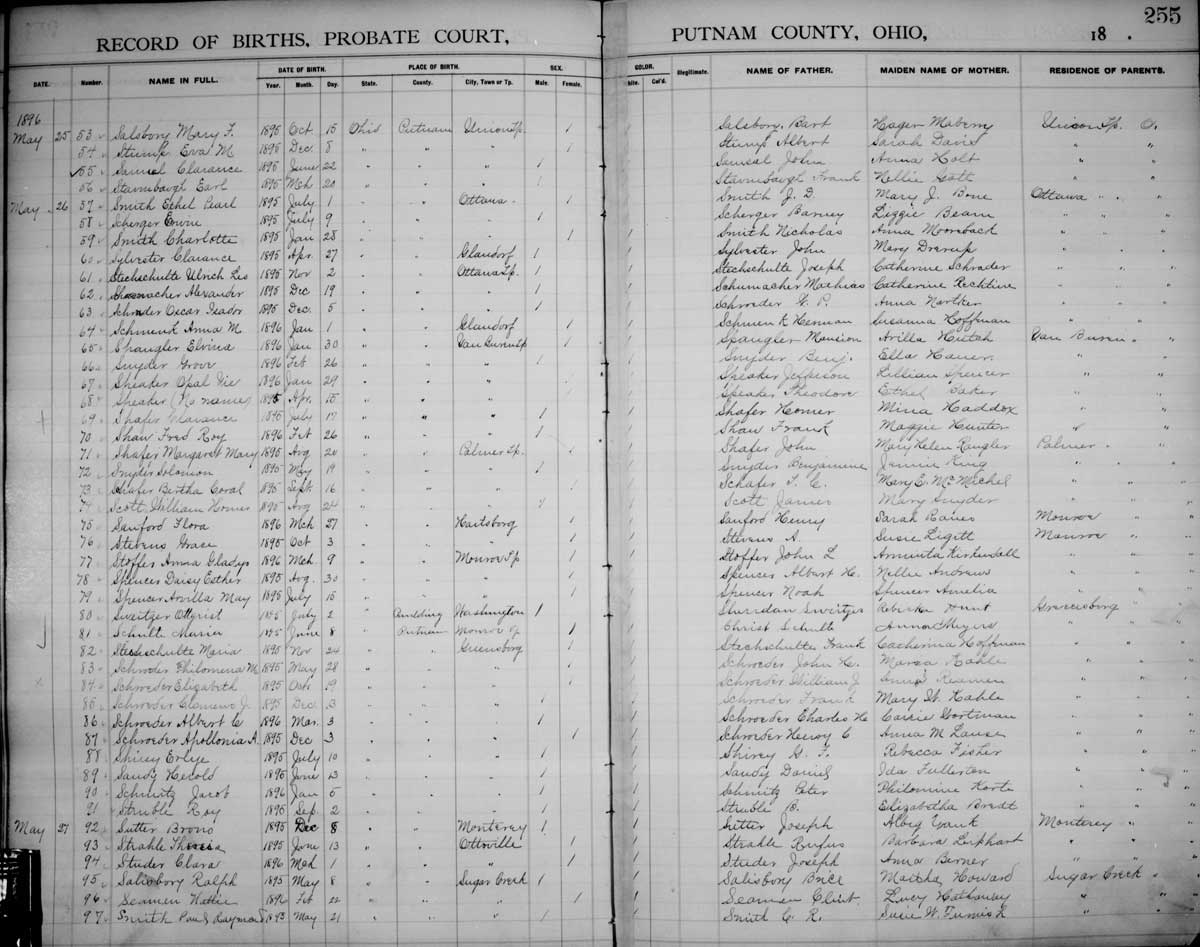 255
RECORD OF BIRTHS, PROBATE COURT, PUTNAM COUNTY, OHIO, 18 .
DATE. Number. NAME IN FULL. DATE OF BIRTH. Year. Month. Day. PLACE OF BIRTH. State. County. City, Town or Tp. SEX. Male. Female. COLOR. Col'd. Illegitimate. NAME OF FATHER. MAIDEN NAME OF MOTHER. RESIDENCE OF PARENTS.
1896
May 25 53 Salsbory Mary F. 1895 Oct. 15 Ohio Putnam Union Tp. 1 1 Salsbory Bart Hager Maberry Union Tp. O.
54 Stump Eva M 1895 Dec. 8 " " " 1 1 Stump Albert Sarah Davis " "
55 Samsel Clarance 1895 June 22 " " " 1 1 Samsal John Anna Holt " "
56 Stambaugh Earl 1895 Mch 20 " " " 1 1 Stambaugh Frank Nellie " "
May 26 57 Smith Ethel Pearl 1895 July 1 " " Ottawa 1 1 Smith J. D. Mary J. Bone Ottawa " "
58 Scherger 1895 July 9 " " " 1 1 Scherger Barney Liggie Beam " " "
59 Smith Charlotte 1895 Jan 28 " " " 1 1 Smith Nicholas Anna " " "
60 Sylvester Clarance 1895 Apr. 27 " " Glandorf 1 1 Sylvester John Mary " " "
61 Stechschulte Ulrich Leo 1895 Nov 2 " " Ottawa Tp. 1 1 Stechschulte Joseph Catherine Schrader " " "
62 Shoemacher Alexander 1895 Dec 19 " " " 1 1 Schumacher Mathias Catherine Recktine " " "
63 Schroder Oscar Isador 1895 Dec. 5 " " " 1 1 Schroeder G. P. Anna " " "
64 Schmenk Anna M 1896 Jan 1 " " Glandorf 1 1 Schmenk Herman Susanna Hoffman " " "
65 Spangler Elvina 1896 Jan 30 " " Van Buren Tp 1 1 Spangler Mansion Arilla Van Buren " "
66 Snyder Grove 1896 Feb 26 " " " 1 1 Snyder Benj. Ella " " "
67 Speaker Opal 1896 Jan 29 " " " 1 1 Speaker Jefferson Lillian Spencer " " "
68 Speaker (No name) 1895 Apr. 15 " " " 1 1 Speaker Theodore Ethel " " "
69 Shafer Clarance 1895 July 17 " " " 1 1 Shafer Homer Mina Haddox " " "
70 Shaw Fred Roy 1896 Feb 26 " " " 1 1 Shaw Frank Maggie Hunter " "
71 Shafer Margaret Mary 1895 Aug 20 " " Palmer Tp. 1 1 Shafer John Mary Helen Rangler Palmer " "
72 Snyder Solomon 1895 May 19 " " " 1 1 Snyder Benjamine Jennie King " " "
73 Shafer Bertha Coral 1895 Sept. 16 " " " 1 1 Schafer T. C. Mary E. McMichel " " "
74 Scott William Homer 1895 Aug 24 " " " 1 1 Scott James Mary Snyder " " "
75 Sanford Flora 1896 Mch 27 " " Hartsburg 1 1 Sanford Henry Sarah Monroe " "
76 Stevens Grace 1895 Oct 3 " " " 1 1 Stevens A. Susie Ligitt Monroe " "
77 Stoffer Anna Gladys 1896 Mch 9 " " Monroe Tp 1 1 Stoffer John L Arminta Kirkendall " " "
78 Spencer Daisy Esther 1895 Aug. 30 " " " 1 1 Spencer Albert H. Nellie Andrews " " "
79 Spencer Arvilla May 1895 July 15 " " " 1 1 Spencer Noah Spencer Amelia " " "
80 Sweitzer 1895 July 2 " Paulding Washington 1 1 Sheridan Sweitzer Rebecka Hunt " "
81 Schulte Maria 1895 June 8 " Putnam Monroe Tp 1 1 Christ Schulte Anna Meyers " " "
82 Stechschulte Maria 1895 Nov 24 " " Greensburg 1 1 Stechschulte Frank Catherina Hoffman " " "
83 Schroeder Philomena M 1895 May 28 " " " 1 1 Schroeder John H. Maria Kahle " " "
84 Schroeder Elizabeth 1895 Oct 19 " " " 1 1 Schroeder William J. Anna " " "
85 Schroeder Clemens J. 1895 Dec 3 " " " 1 1 Schroeder Frank Mary Kahle " " "
86 Schroeder Albert C 1896 Mar. 3 " " " 1 1 Schroeder Charles H. Carrie " " "
87 Schroeder Apollonia A. 1895 Dec 3 " " " 1 1 Schroeder Henry C Anna M " " "
88 Shirey 1895 July 10 " " " 1 1 Shirey G. F. Rebecca Fisher " " "
89 Sandy Herold 1895 June 13 " " " 1 1 Sandy Daniel Ida Fullerton " " "
90 Schmitz Jacob 1896 Jan 5 " " " 1 1 Schmitz Peter Philomine Korte " " "
91 Struble Roy 1895 Sep. 2 " " " 1 1 Struble Elizabetha Bredt " " "
May 27 92 Sutter Brono 1895 Dec 8 " " Monterey 1 1 Sutter Joseph Monterey " "
93 Strahle Theresa 1895 June 13 " " Ottoville 1 1 Strahle Rufus Barbara " " "
94 Studer Clara 1896 Mch 1 " " " 1 1 Studer Joseph Anna Berner " " "
95 Salisbory Ralph 1895 May 8 " " Sugar Creek 1 1 Salisbory Brice Martha Howard Sugar Creek " "
96 Seamen Hattie 1896 Feb 22 " " " 1 1 Seamen Clint. Lucy Hathaway " " "
97 Smith Paul Raymond 1893 May 21 " " " 1 1 Smith C. R. Susie W. Furnish " " "